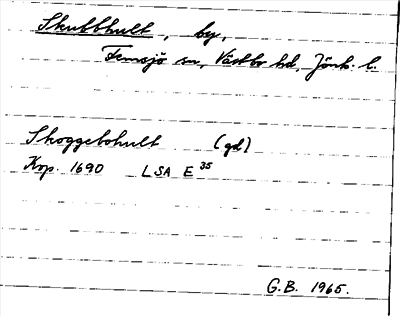 Skubbhult, by,
Femsjö sn, Västbo hd, Jönk. l.
Skoggebohult (gd)
Kop. 1690 LSA E 35
G.B. 1965.